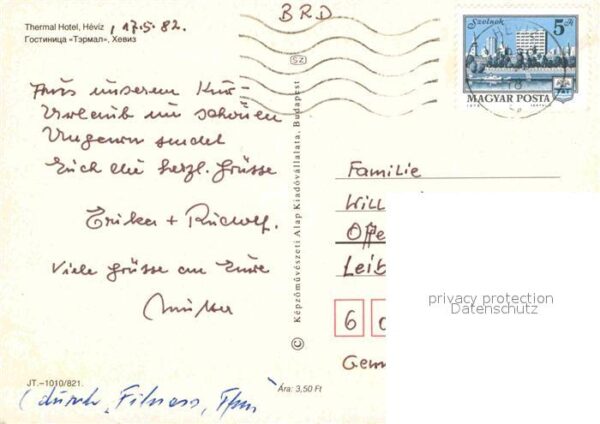 Thermal Hotel, Hévíz, 17.5.82.
Гостиница «Тэрмал», Хевиз
BRD
Szolnok 5 Ft
MAGYAR POSTA
Aus unserem Kur-
Urlaub im schönen
Ungarn sendet
Euch die herzl. Grüsse
Erika + Rudolf.
Viele Grüsse an Eure
Mutter
25
© Képzőművészeti Alap Kiadóvállalata, Budapest
Familie
Will
Offe
Leib
6
Germ
privacy protection
Datenschutz
JT.–1010/821.
Ára: 3,50 Ft
(durch, Fitness,